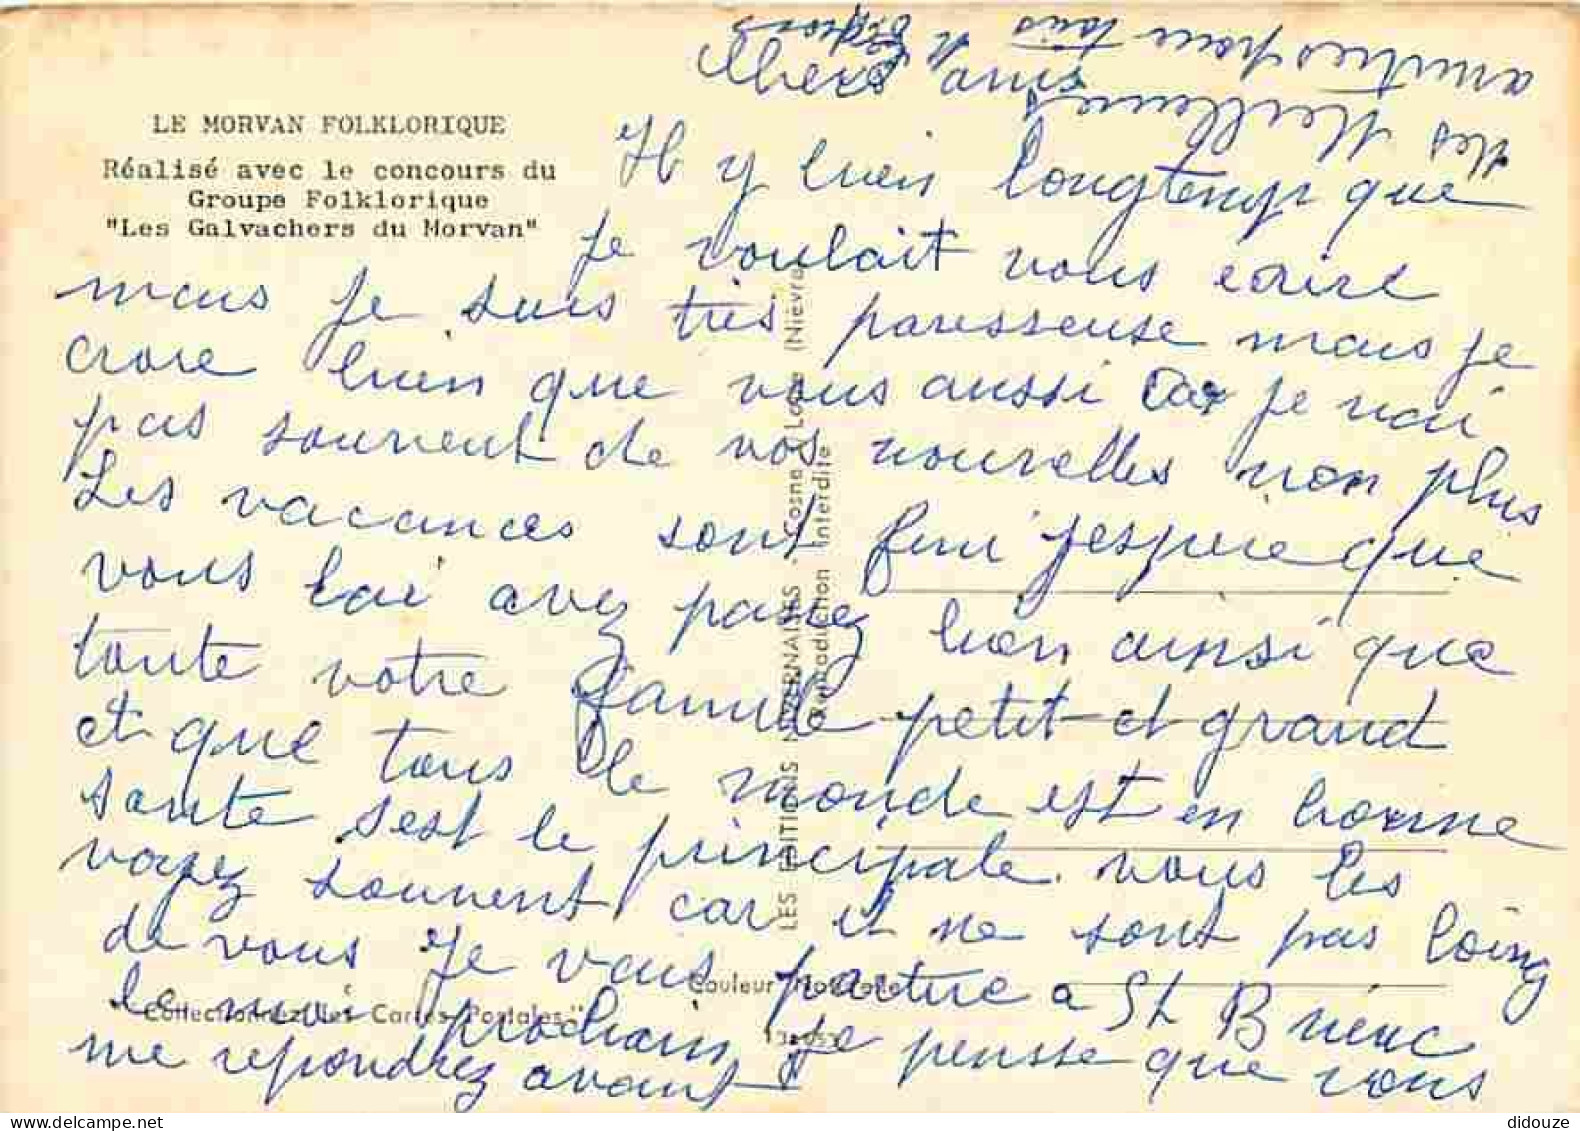 Chers amis
LE MORVAN FOLKLORIQUE
Réalisé avec le concours du
Groupe Folklorique
"Les Galvachers du Morvan"
Il y bien longtemps que
je voulait vous ecrire
mais je suis très paresseuse mais je
croie bien que vous aussi car je nai
pas souvent de vos nouvelles non plus
Les vacances sont fini jespere que
vous lai avez passez bien ainsi que
toute votre famille petit et grand
et que tous le monde est en bonne
sante sest le principale vous les
voyez souvent car il ne sont pas loing
de vous Je vais partire a St Brieuc
le moi prochain je pensse que vous
me repondrez avant
Mes Meilleures
amities pour tous
LES EDITIONS NIVERNAIS - Cosne Loire (Nièvre)
Reproduction interdite
Couleur Naturelle
"Collectionnez les Cartes Postales"
didouze